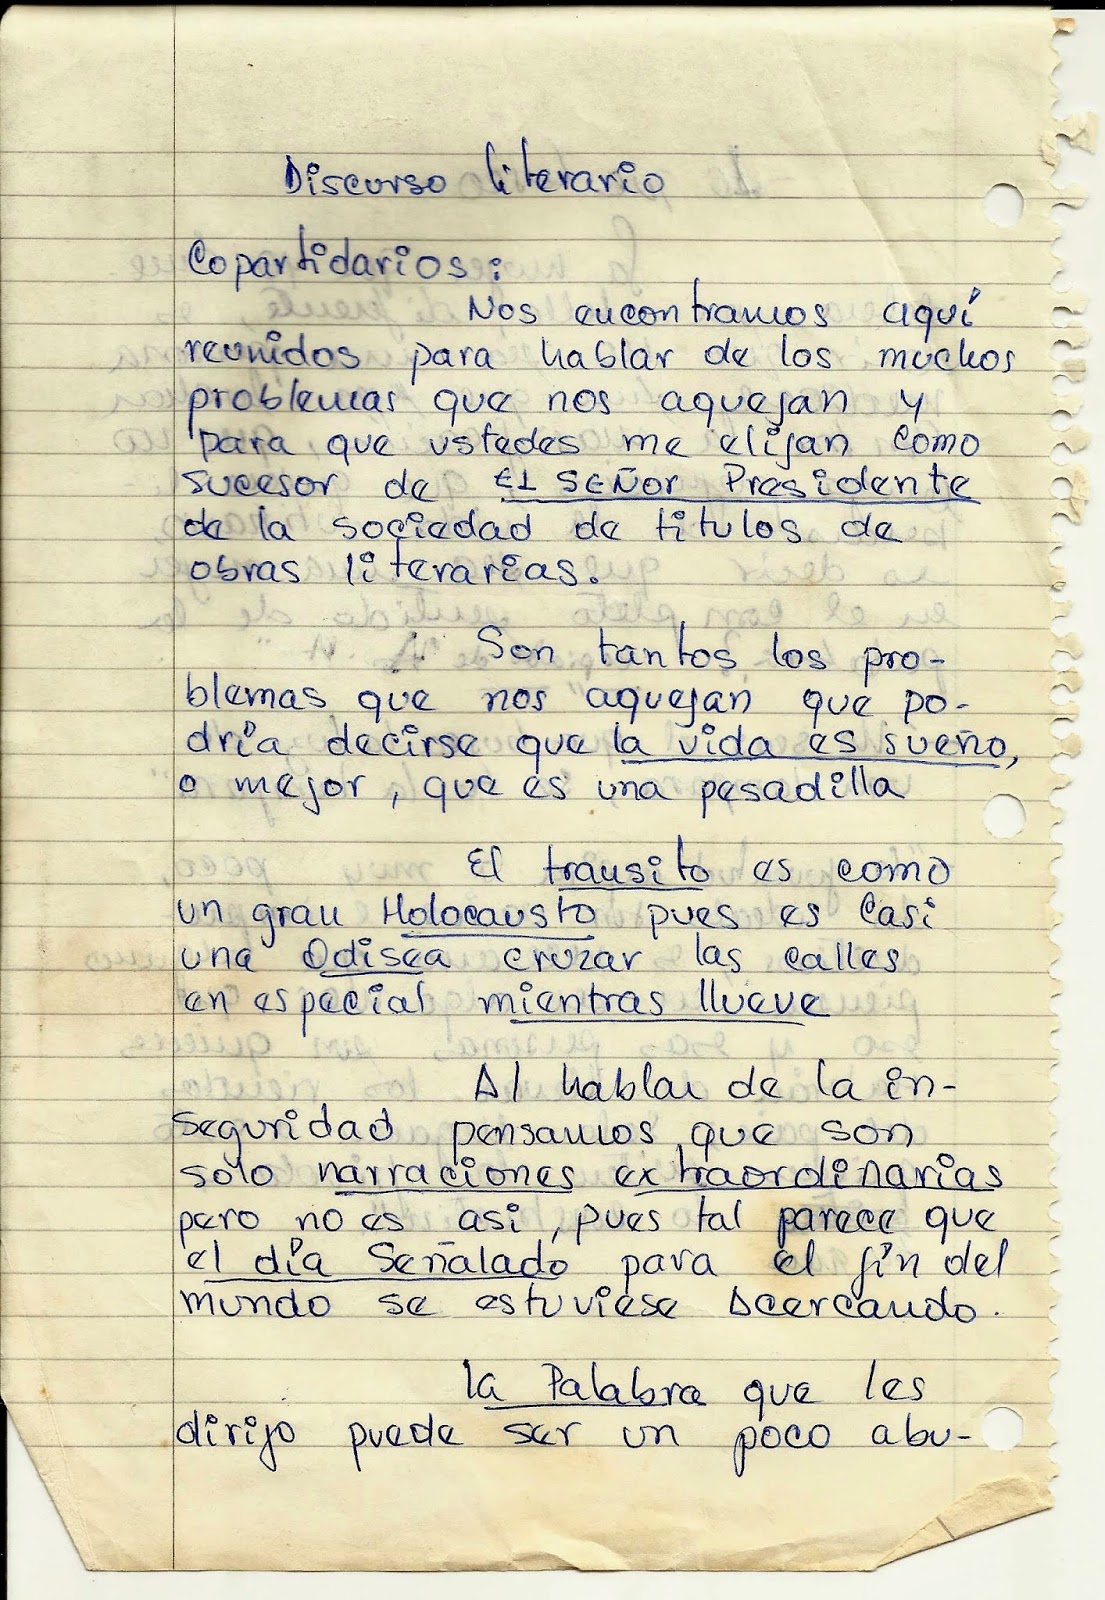 Discurso literario
Copartidarios:
Nos encontramos aquí
reunidos para hablar de los muchos
problemas que nos aquejan y
para que ustedes me elijan como
sucesor de EL SEÑOR Presidente
de la sociedad de titulos de
obras literarias.
Son tantos los pro-
blemas que nos aquejan que po-
dría decirse que la vida es sueño,
o mejor, que es una pesadilla
El transito es como
un gran Holocausto pues es casi
una Odisea cruzar las calles
en especial mientras llueve
Al hablar de la in-
seguridad pensamos que son
solo narraciones extraordinarias
pero no es asi, pues tal parece que
el día Señalado para el fin del
mundo se estuviese acercando.
la Palabra que les
dirijo puede ser un poco abu-